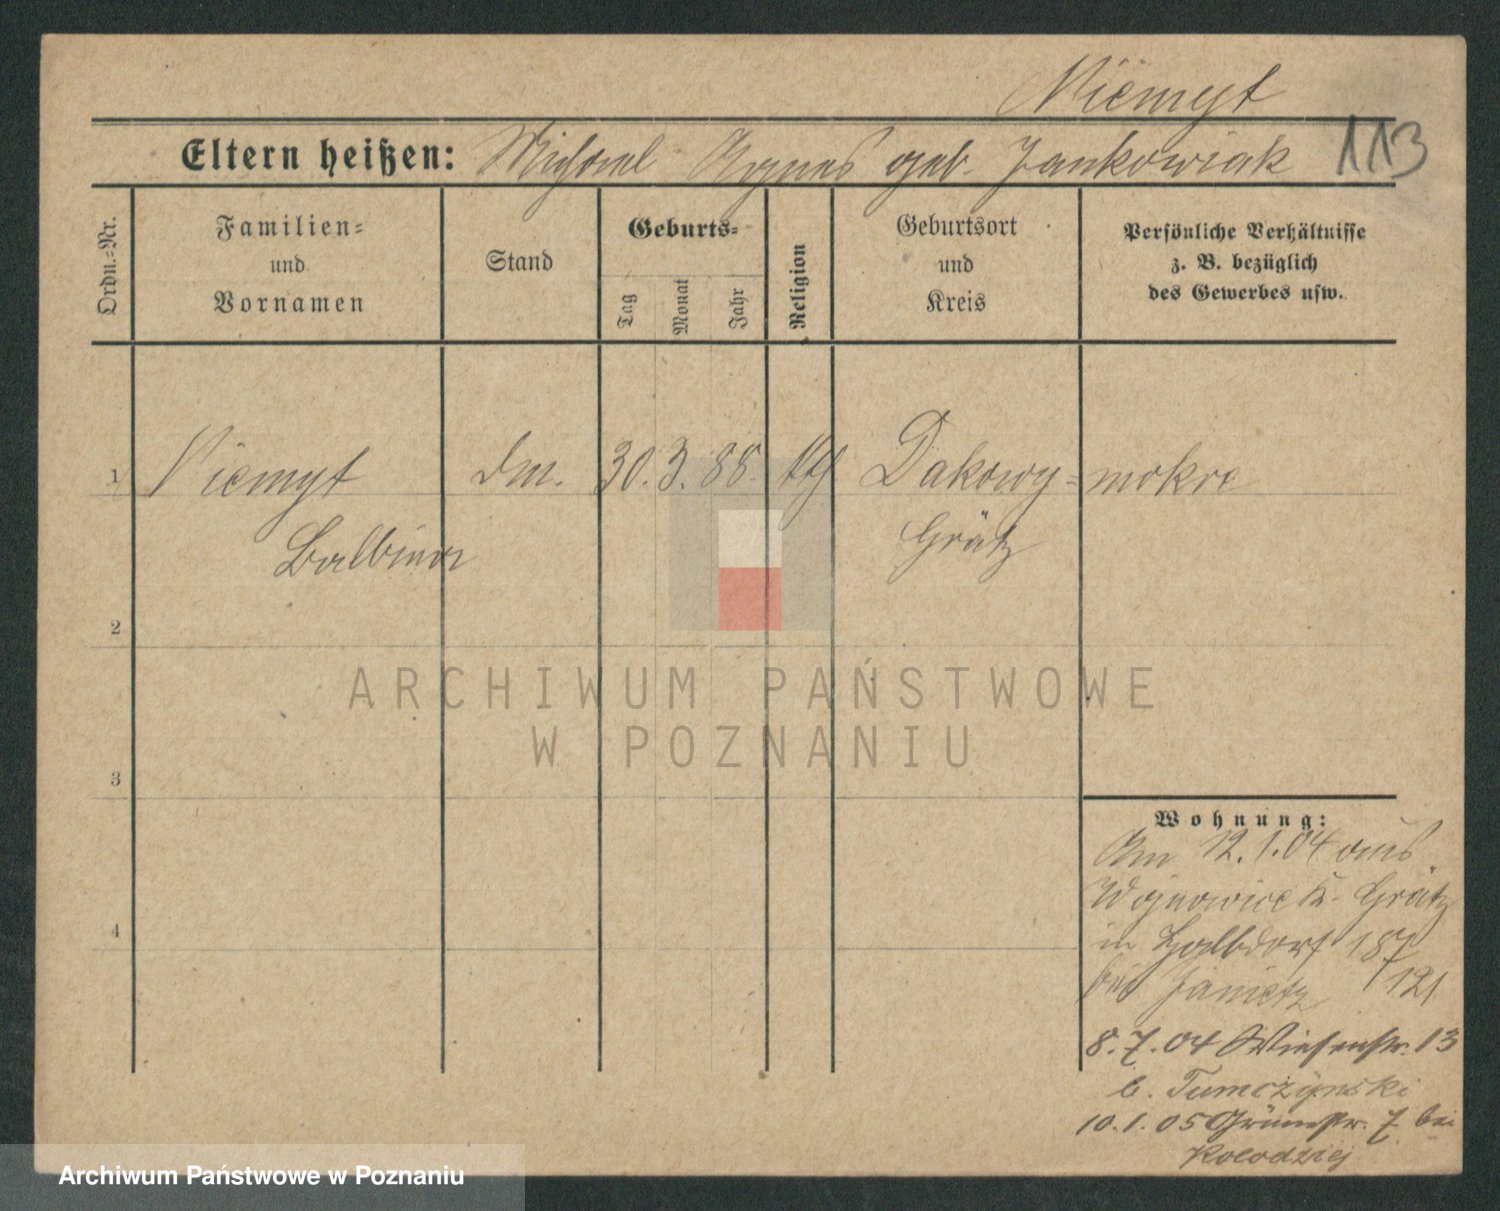 Niemyt
113
Eltern heißen: Michael Agnes geb. Jankowiak
Ordn.-Nr.
Familien-
und
Vornamen
Stand
Geburts-
Tag
Monat
Jahr
Religion
Geburtsort
und
Kreis
Persönliche Verhältnisse
z. B. bezüglich
des Gewerbes usw.
1 Niemyt Dm. 30. 3. 88. kth Dakowy-mokre
Balbina Grätz
2
3
4
ARCHIWUM PAŃSTWOWE
W POZNANIU
Wohnung:
Am 12.1.04 aus
Wojnowice K. Grätz
in Halbdorf 187
bei Janietz 121
8.7.04 Wiesenstr. 13
b. Tumczynski
10.1.05 Grünestr. 7 bei
Kolodziej
Archiwum Państwowe w Poznaniu